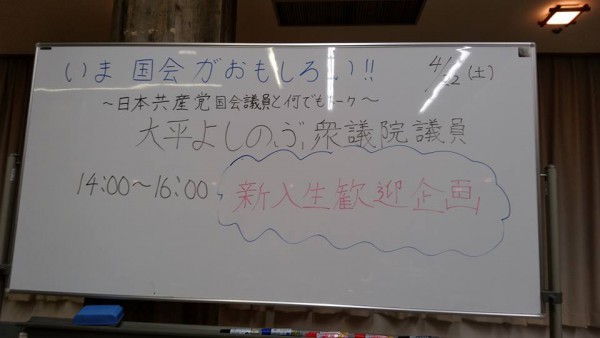 いま国会がおもしろい!!
4/22(土)
～日本共産党国会議員と何でもトーク～
大平よしのぶ衆議院議員
14:00～16:00
新入生歓迎企画